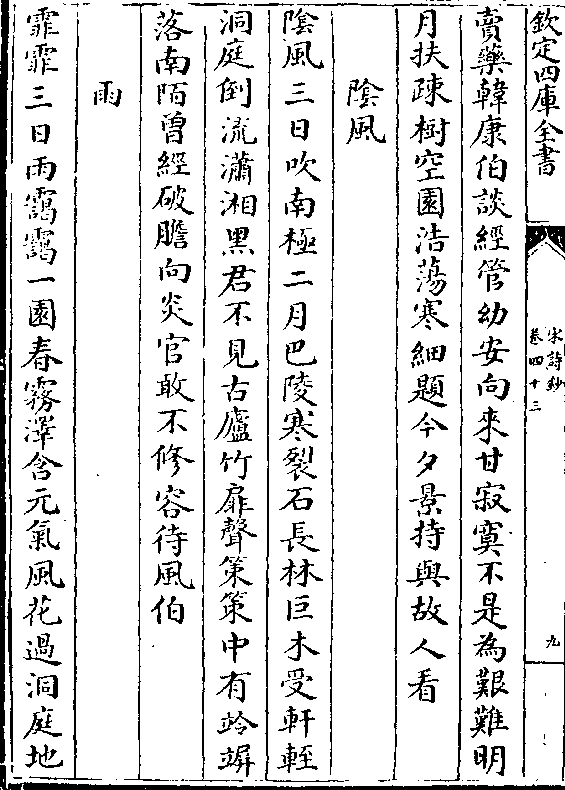 欽定四庫全書
宋詩鈔
卷四十三
九
賣藥韓康伯談經管幼安向來甘寂寞不是為艱難明
月扶疎樹空園浩蕩寒細題今夕景持與故人看
陰風
陰風三日吹南極二月巴陵寒裂石長林巨木受軒輊
洞庭倒流瀟湘黑君不見古廬竹扉聲策策中有竛竮
落南陌曾經破膽向炎官敢不修容待風伯
雨
霏霏三日雨靄靄一園春霧澤含元氣風花過洞庭地